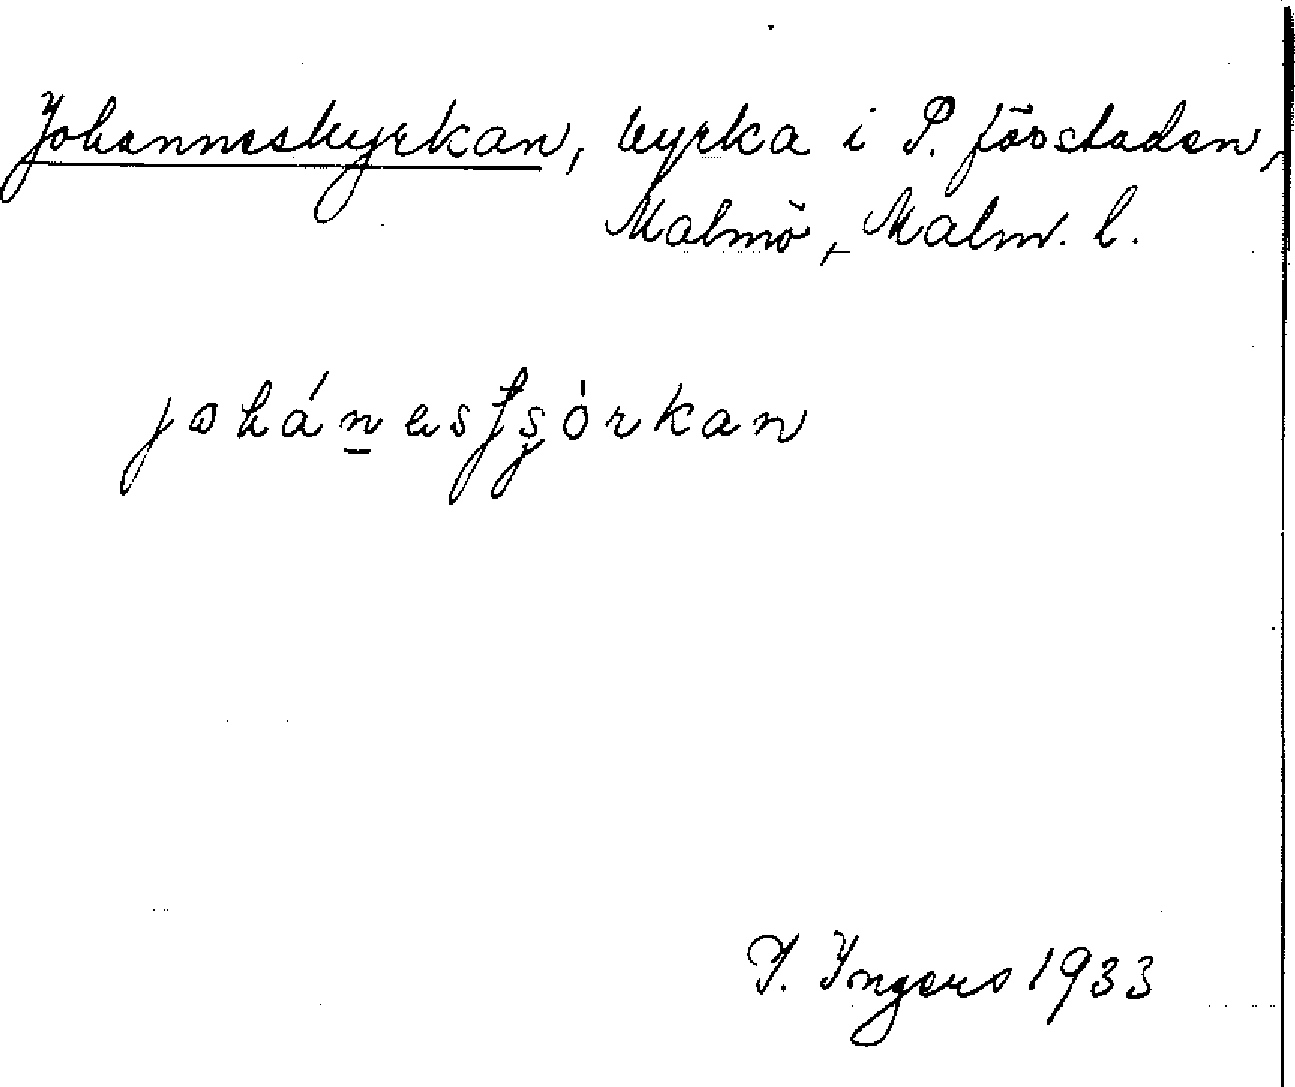 Johanneskyrkan, kyrka i P. förstaden,
Malmö, Malm. l.
I. Ingers 1933